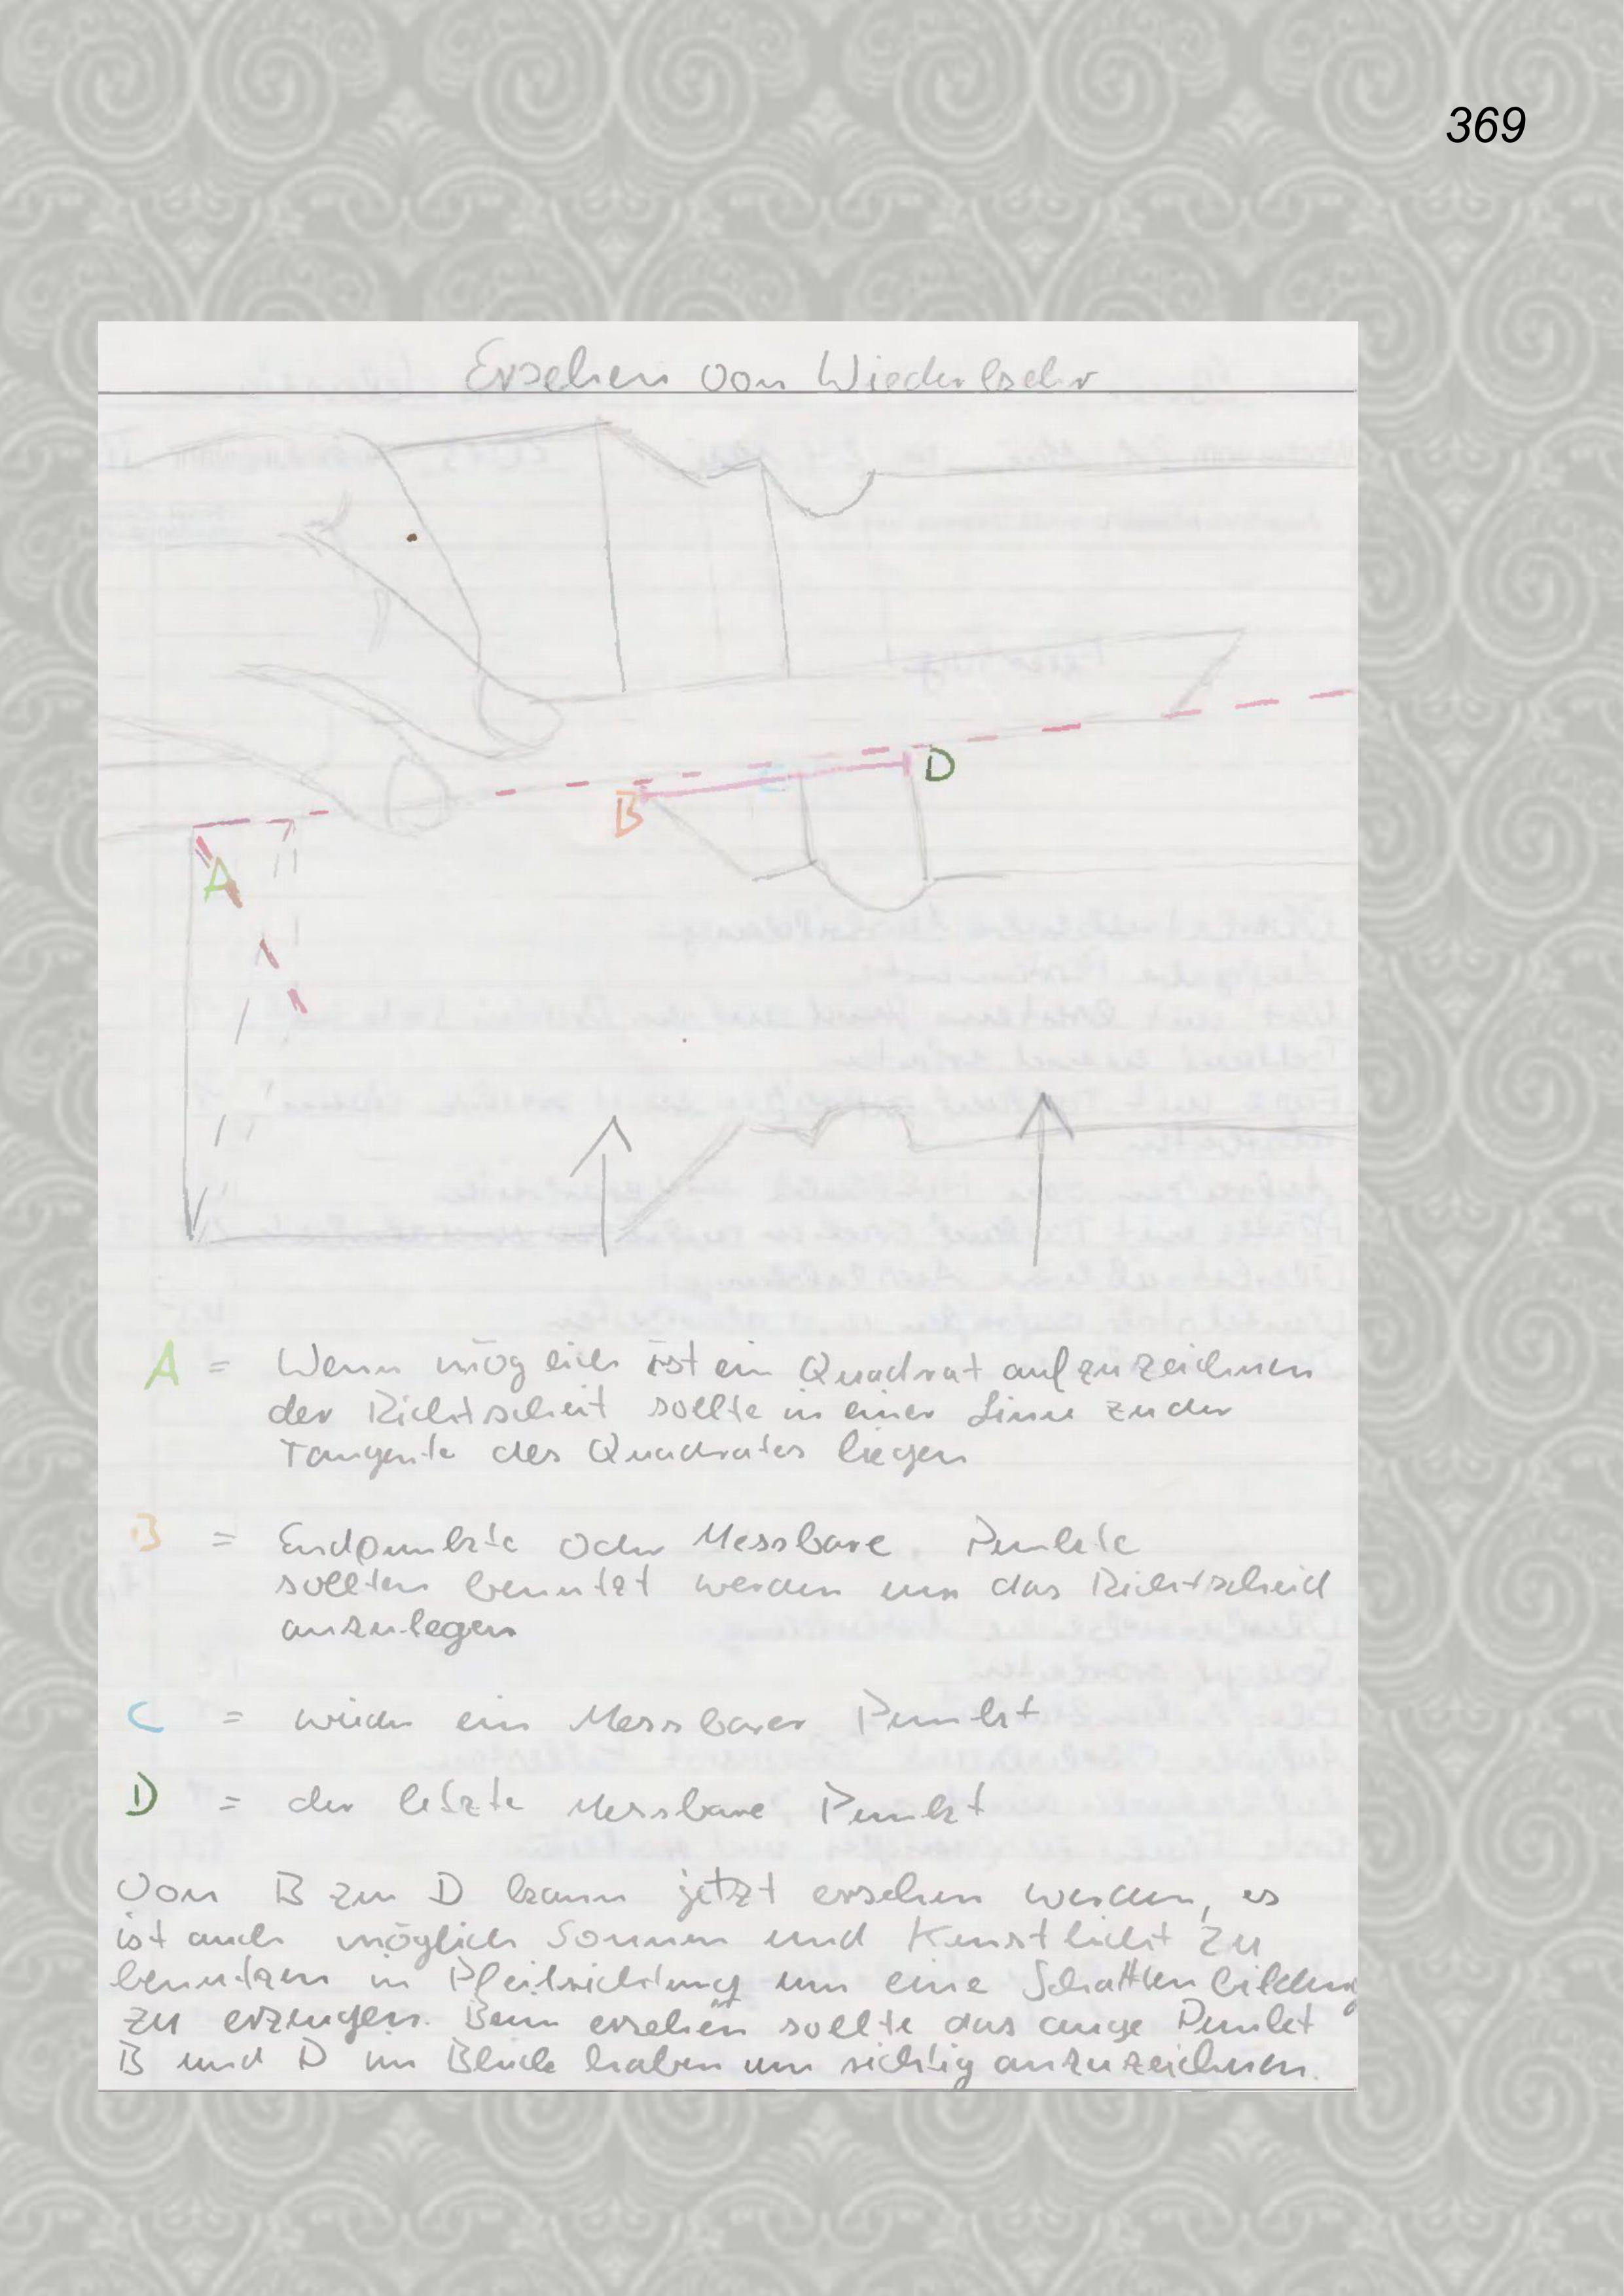 369
Ersehen von Wiederkehr
D
C
B
A
A = Wenn möglich ist ein Quadrat aufzuzeichnen
der Richtscheit sollte in einer Linie zu der
Tangente des Quadrates liegen
B = Endpunkte oder Messbare Punkte
sollten benutzt werden um das Richtscheid
anzulegen
C = ein Messbarer Punkt
D = der letzte Messbare Punkt
Von B zu D kann jetzt ersehen werden, es
ist auch möglich Sonnen und Kunstlicht zu
benutzen in Pfeilrichtung um eine Schattenbildung
zu erzeugen. Beim ersehen sollte das auge Punkt
B und D im Blick haben um richtig anzuzeichnen.